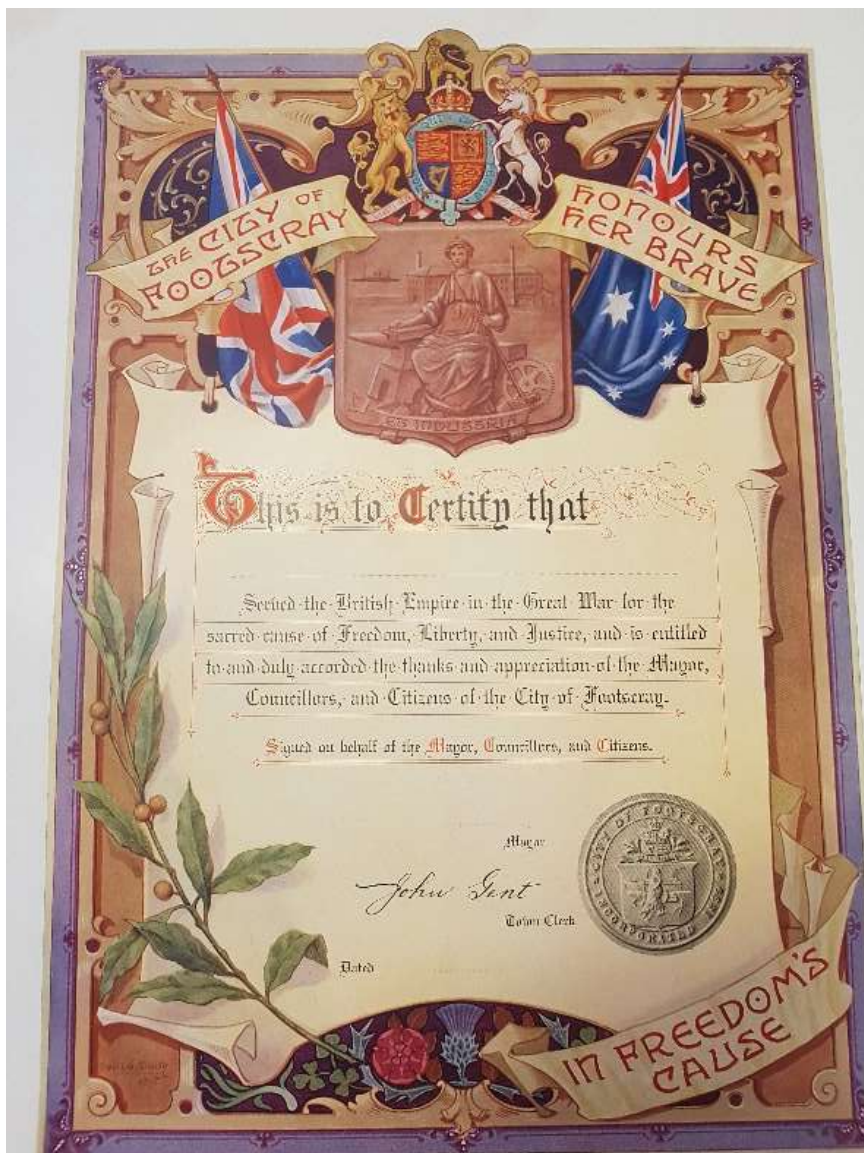 THE CITY OF
FOOTSCRAY
HONOURS
HER BRAVE
This is to Certify that
Served the British Empire in the Great War for the
sacred cause of Freedom, Liberty, and Justice, and is entitled
to and duly accorded the thanks and appreciation of the Mayor,
Councillors, and Citizens of the City of Footscray.
Signed on behalf of the Mayor, Councillors, and Citizens.
Mayor
John Gent
Town Clerk
Dated
CITY OF FOOTSCRAY
INCORPORATED
IN FREEDOM'S
CAUSE